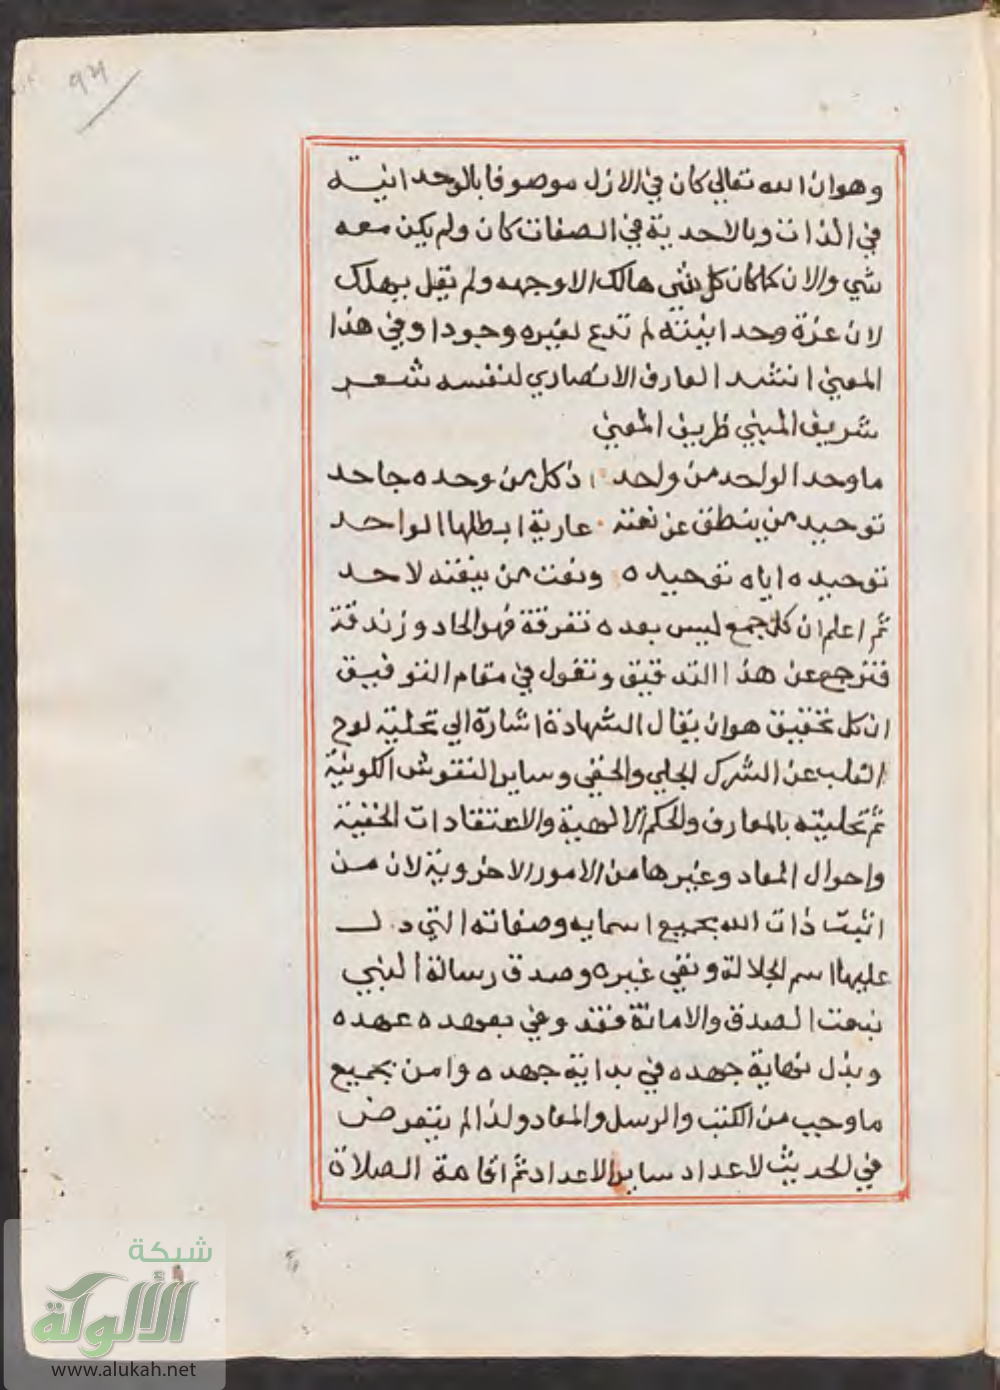 ٩٣
وهو ان الله تعالي كان في الازل موصوفا بالوحدانية
في الذات وبالاحدية في الصفات كان ولم يكن معه
شي والان كما كان كل شي هالك الا وجهه ولم يقل يهلك
لان عزة وحدانيته لم تدع لغيره وجودا وفي هذا
المعني انشد العارف الانصاري لنفسه شعر
شريف المبني ظريف المعني
ما وحد الواحد من واحد اذ كل من وحده جاحد
توحيد من ينطق عن نعته عارية ابطلها الواحد
توحيده اياه توحيده ونعت من ينعته لاحد
ثم اعلم ان كل جمع ليس بعده تفرقة فهو الحاد وزندقة
فنرجع عن هذا التدقيق ونقول في مقام التوفيق
ان كل تحقيق هو ان يقال الشهادة اشارة الي تخلية لوح
القلب عن الشرك الجلي والخفي وساير النقوش الكونية
ثم تحليته بالمعارف والحكم الالهية والاعتقادات الحقية
واحوال المعاد وغيرها من الامور الاخروية لان من
اثبت ذات الله بجميع اسمايه وصفاته التي دل
عليها اسم الجلالة ونفي غيره وصدق رسالة النبي
بنعت الصدق والامانة فقد وفي بعهده عهده
وبذل نهاية جهده في بداية جهده وامن بجميع
ما وجب من الكتب والرسل والمعاد ولذا لم يتعرض
في الحديث لاعداد ساير الاعداد ثم اقامة الصلاة
شبكة
الألوكة
www.alukah.net